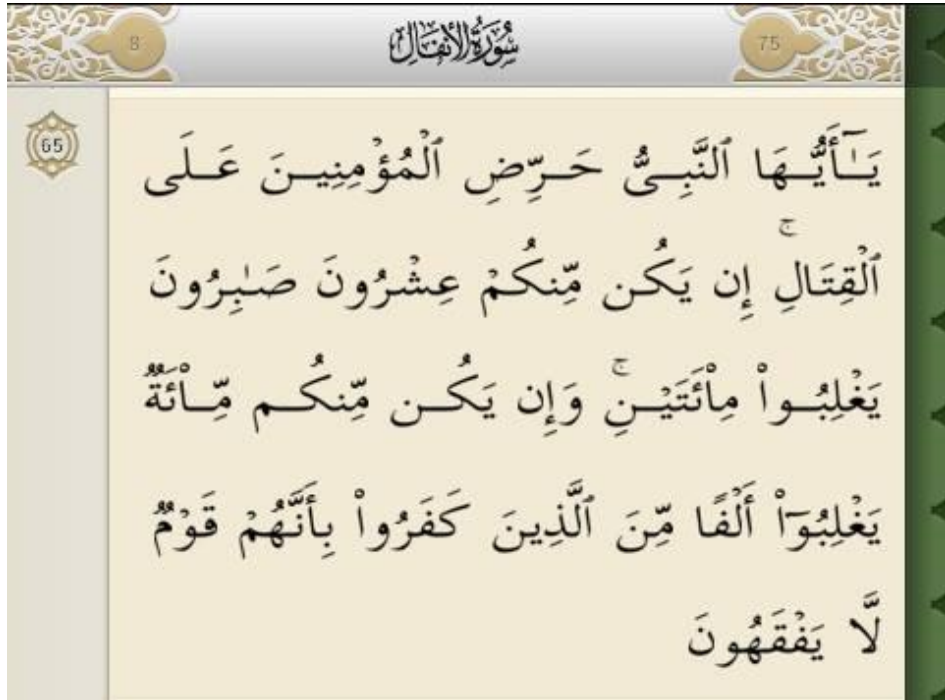 8 سُورَةُ الأَنفَالِ 75
65
يَـٰٓأَيُّـهَا ٱلنَّبِـىُّ حَـرِّضِ ٱلْمُؤْمِنِيـنَ عَـلَى
ٱلْقِتَالِ ۚ إِن يَكُن مِّنكُمْ عِشْرُونَ صَـٰبِرُونَ
يَغْلِبُـوا۟ مِا۟ئَتَيْـنِ ۚ وَإِن يَكُـن مِّنكُـم مِّـا۟ئَةٌ
يَغْلِبُوٓا۟ أَلْفًا مِّنَ ٱلَّذِينَ كَفَرُوا۟ بِأَنَّهُمْ قَوْمٌ
لَّا يَفْقَهُونَ